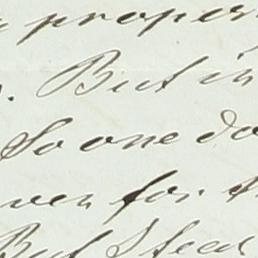 proper
. But in
So one do
ven for
But I feel